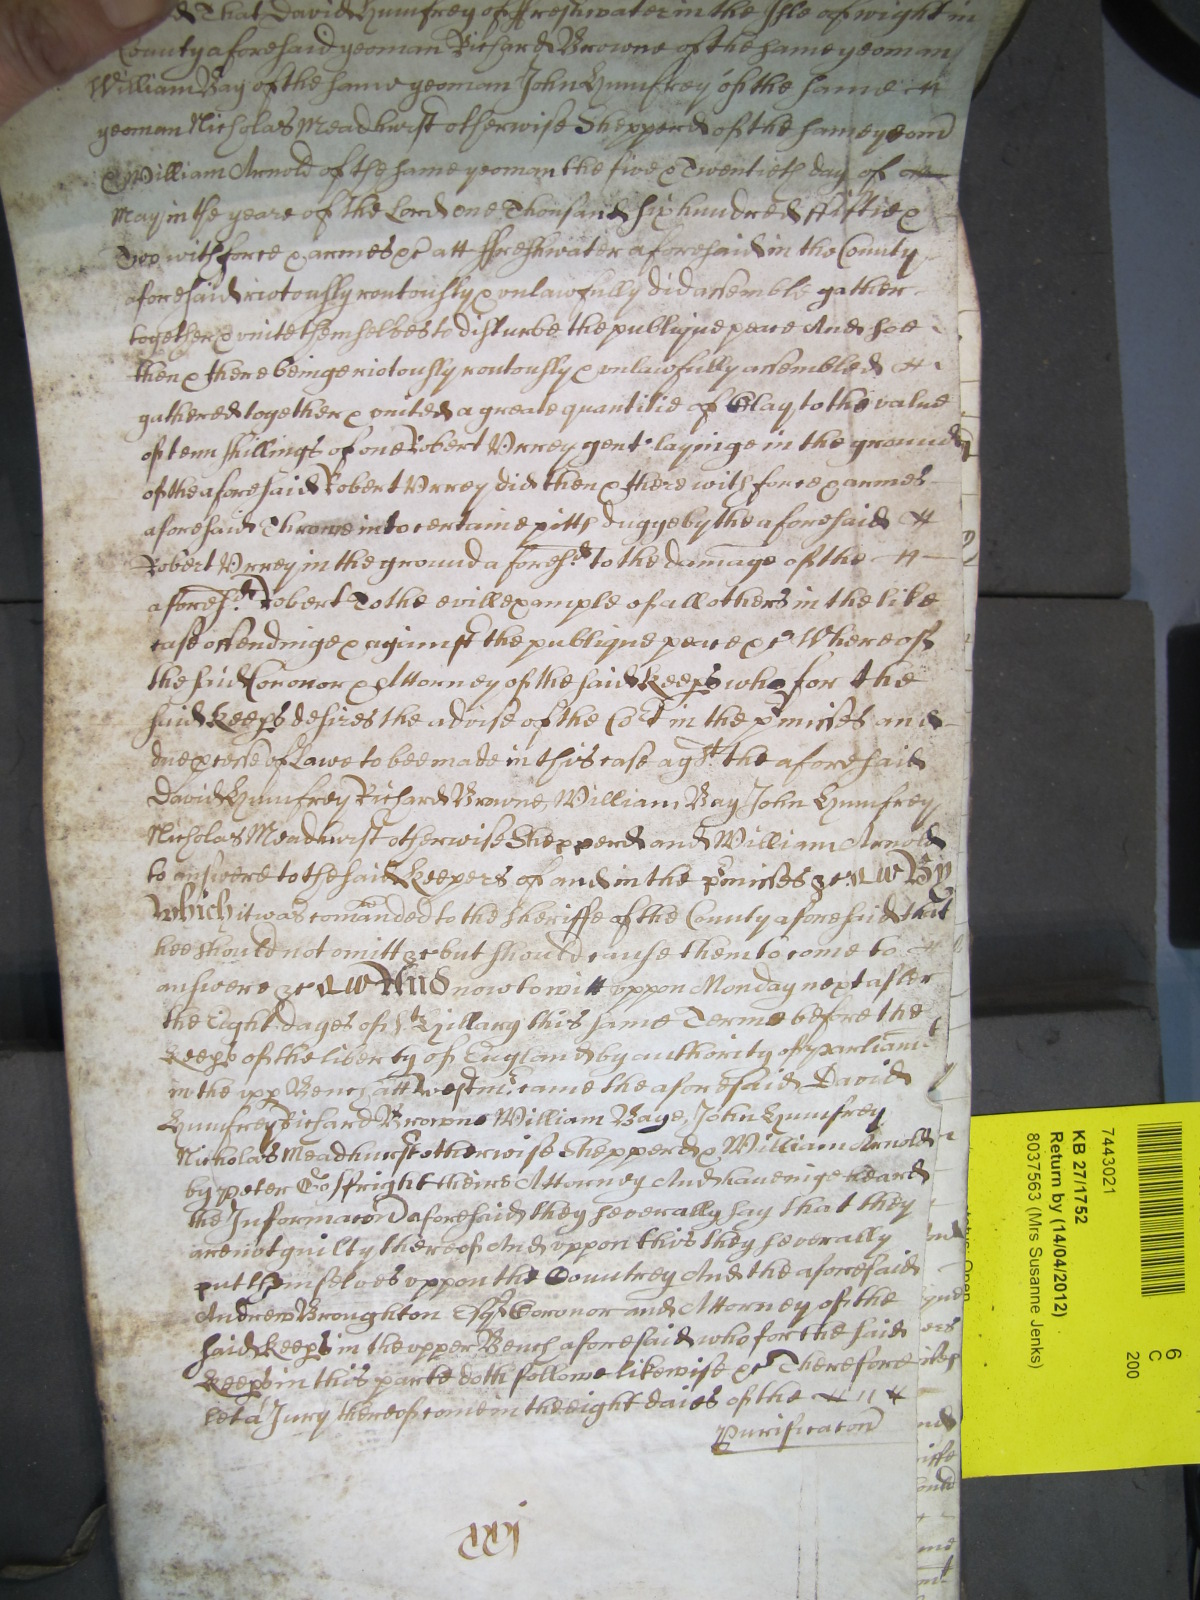 That David Humfrey of Freshwater in the Isle of wight in
County aforesaid yeoman Richard Browne of the same yeoman
William Bay of the same yeoman John Humfrey of the same
yeoman Nicholas Meadhurst otherwise Shepperd of the same yeom
& William Arnold of the same yeoman the five & Twentieth day of
May in the yeare of the Lord one Thousand six hundred fiftie &
Two with force & armes &c att ffreshwater aforesaid in the County
aforesaid riotously routously & unlawfully did assemble gather
together & unite themselves to disturbe the publique peace And soe
then & there beinge riotously routously & unlawfully assembled
gathered together & united a greate quantitie of Clay to the value
of tenn shillings of one Robert Vrrey gent layinge in the ground
of the aforesaid Robert Vrrey did then & there with force & armes
aforesaid Throwe into certaine pitts dugge by the aforesaid
Robert Vrrey in the ground aforesd to the damage of the
aforesd Robert To the evill example of all others in the like
case offendinge & against the publique peace &c Whereof
the said Coronor & Attorney of the said Keeps who for the
said Keeps desires the advise of the Cort in the pmisses and
due pcesse of Lawe to bee made in this case agst the aforesaid
David Humfrey Richard Browne William Bay John Humfrey
Nicholas Meadhurst otherwise Shepperd and William Arnold
to answere to the said Keepers of and in the pmisses &c By
which it was comanded to the sheriffe of the County aforesaid that
hee should not omitt &c but should cause them to come to
answere &c And now to witt uppon Monday next after
the Eight dayes of St Hillary this same Terme before the
Keeps of the liberty of England by authority of parliamt
in the upp Bench att Westmr came the aforesaid David
Humfrey Richard Browne William Baye John Humfrey
Nicholas Meadhurst otherwise Shepperd & William Arnold
by Peter Gosfright theire Attorney And haveinge heard
the Informacon aforesaid they severally say that they
are not guilty thereof And uppon this they severally
put themselves uppon the Countrey And the aforesaid
Andrew Broughton Esqr Coronor and Attorney of the
said Keeps in the upper Bench aforesaid who for the said
Keeps in this parte doth followe likewise &c Therefore
let a Jury thereof come in the eight daies of the
Purificacon
xxj
7443021
KB 27/1752
Return by (14/04/2012)
8037563 (Mrs Susanne Jenks)
6
C
200